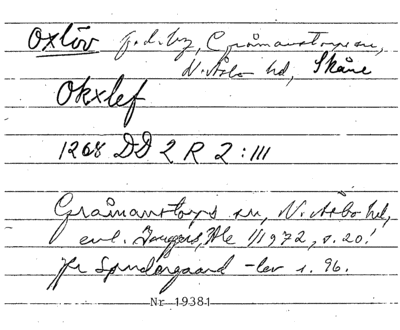 Oxlöv f.d. by, Gråmanstorps sn,
N. Åsbo hd, Skåne
Okxlef
1268 DD 2 R 2:111
Gråmanstorps sn, N. Åsbo hd,
enl. Ale 1/1972, s. 20!
Jfr Søndergaard -lev s. 96.
Nr 19381